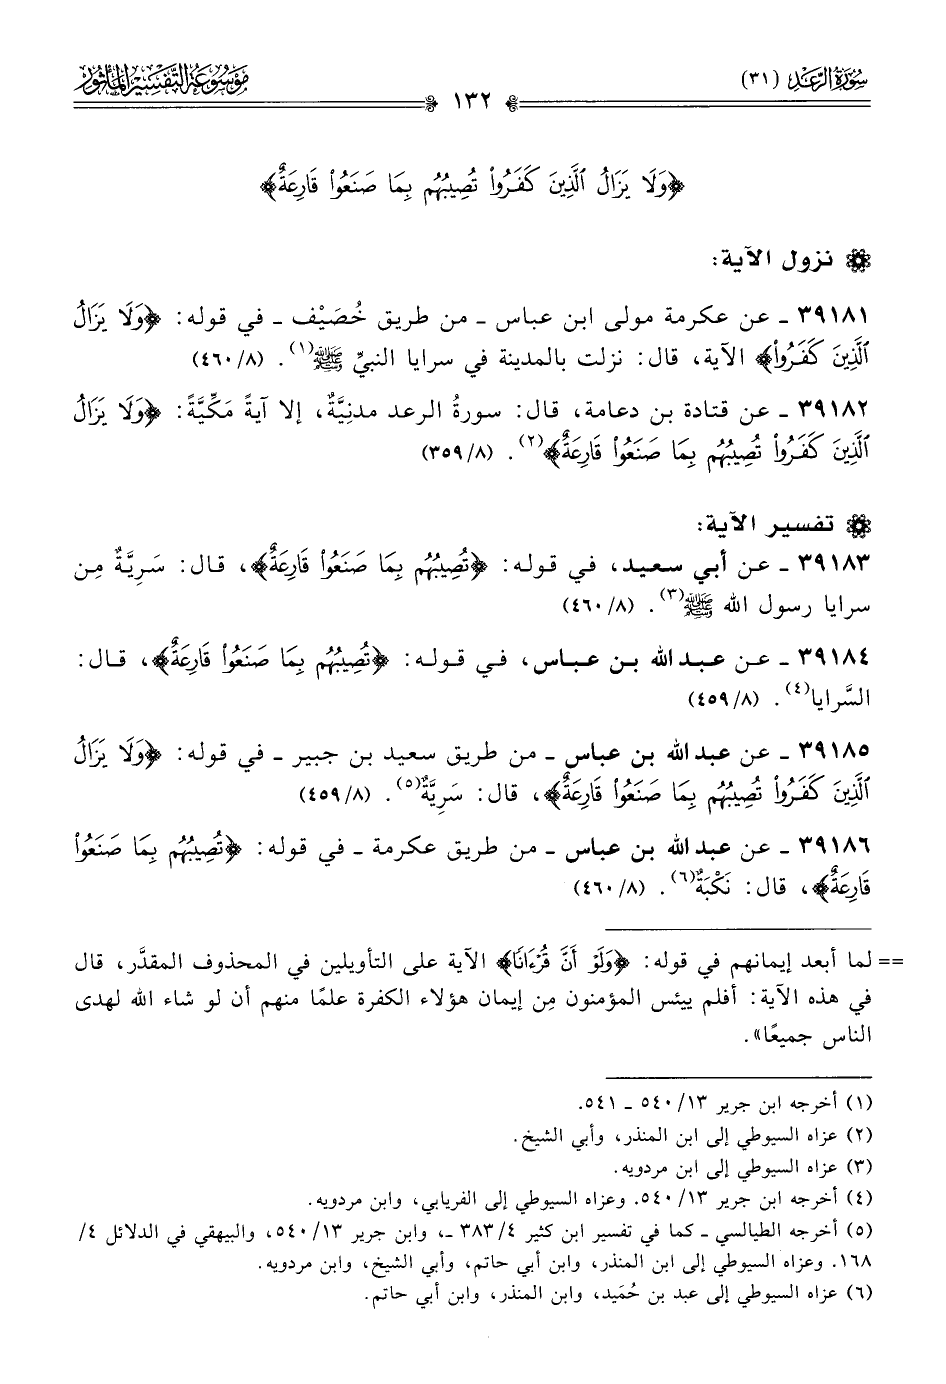 سُورَةُ الرَّعْد (٣١)
١٣٢
مَوْسُوعَةُ التَّفْسِيرِ المَأْثُورِ
﴿وَلَا يَزَالُ ٱلَّذِينَ كَفَرُوا۟ تُصِيبُهُم بِمَا صَنَعُوا۟ قَارِعَةٌ﴾
نزول الآية:
٣٩١٨١ ـ عن عكرمة مولى ابن عباس ـ من طريق خُصَيْف ـ في قوله: ﴿وَلَا يَزَالُ
ٱلَّذِينَ كَفَرُوا۟﴾ الآية، قال: نزلت بالمدينة في سرايا النبيِّ ﷺ(١). (٤٦٠/٨)
٣٩١٨٢ ـ عن قتادة بن دعامة، قال: سورةُ الرعد مدنِيَّةٌ، إلا آيةً مَكِّيَّةً: ﴿وَلَا يَزَالُ
ٱلَّذِينَ كَفَرُوا۟ تُصِيبُهُم بِمَا صَنَعُوا۟ قَارِعَةٌ﴾(٢). (٣٥٩/٨)
تفسير الآية:
٣٩١٨٣ ـ عن أبي سعيد، في قوله: ﴿تُصِيبُهُم بِمَا صَنَعُوا۟ قَارِعَةٌ﴾، قال: سَرِيَّةٌ مِن
سرايا رسول الله ﷺ(٣). (٤٦٠/٨)
٣٩١٨٤ ـ عن عبد الله بن عباس، في قوله: ﴿تُصِيبُهُم بِمَا صَنَعُوا۟ قَارِعَةٌ﴾، قال:
السَّرايا(٤). (٤٥٩/٨)
٣٩١٨٥ ـ عن عبد الله بن عباس ـ من طريق سعيد بن جبير ـ في قوله: ﴿وَلَا يَزَالُ
ٱلَّذِينَ كَفَرُوا۟ تُصِيبُهُم بِمَا صَنَعُوا۟ قَارِعَةٌ﴾، قال: سَرِيَّةٌ(٥). (٤٥٩/٨)
٣٩١٨٦ ـ عن عبد الله بن عباس ـ من طريق عكرمة ـ في قوله: ﴿تُصِيبُهُم بِمَا صَنَعُوا۟
قَارِعَةٌ﴾، قال: نَكْبَةٌ(٦). (٤٦٠/٨)
== لما أبعد إيمانهم في قوله: ﴿وَلَوْ أَنَّ قُرْءَانًا﴾ الآية على التأويلين في المحذوف المقدَّر، قال
في هذه الآية: أفلم ييئس المؤمنون مِن إيمان هؤلاء الكفرة علمًا منهم أن لو شاء الله لهدى
الناس جميعًا».
(١) أخرجه ابن جرير ١٣/ ٥٤٠ ـ ٥٤١.
(٢) عزاه السيوطي إلى ابن المنذر، وأبي الشيخ.
(٣) عزاه السيوطي إلى ابن مردويه.
(٤) أخرجه ابن جرير ١٣/ ٥٤٠. وعزاه السيوطي إلى الفريابي، وابن مردويه.
(٥) أخرجه الطيالسي ـ كما في تفسير ابن كثير ٤/ ٣٨٣ ـ، وابن جرير ١٣/ ٥٤٠، والبيهقي في الدلائل ٤/
١٦٨. وعزاه السيوطي إلى ابن المنذر، وابن أبي حاتم، وأبي الشيخ، وابن مردويه.
(٦) عزاه السيوطي إلى عبد بن حُمَيد، وابن المنذر، وابن أبي حاتم.